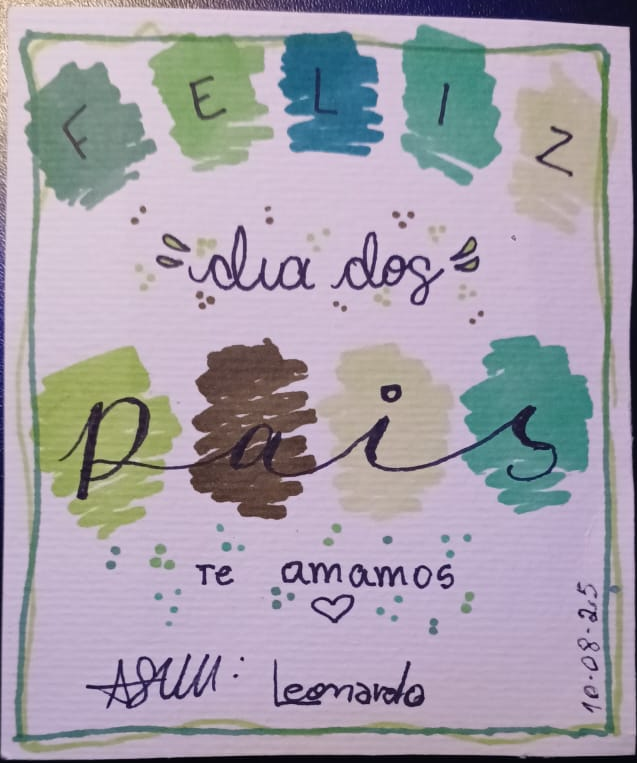 FELIZ
dia dos
pais
Te amamos
Leonardo
10-08-25